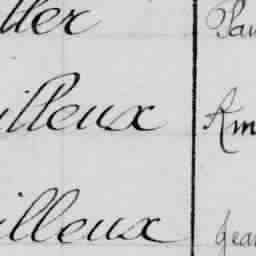 ller Pau
illeux Am
illeux Jean